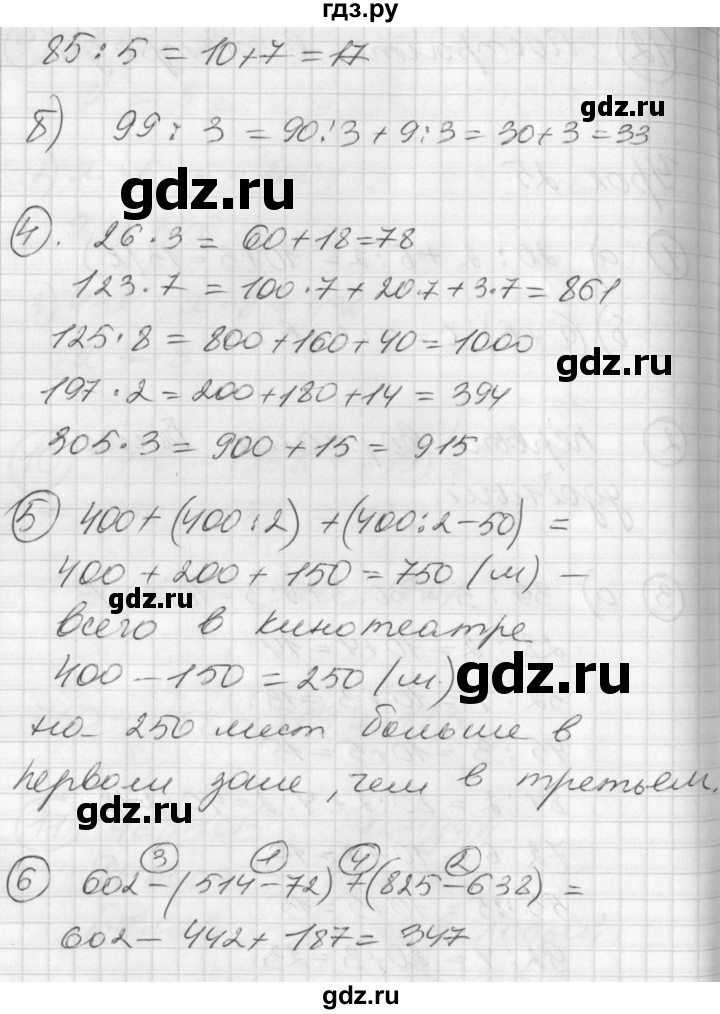 гдз.ру
85 : 5 = 10 + 7 = 17
gdz.ru
б) 99 : 3 = 90 : 3 + 9 : 3 = 30 + 3 = 33
gdz.ru
4. 26 · 3 = 60 + 18 = 78
123 · 7 = 100 · 7 + 20 · 7 + 3 · 7 = 861
125 · 8 = 800 + 160 + 40 = 1000
gdz.ru
197 · 2 = 200 + 180 + 14 = 394
305 · 3 = 900 + 15 = 915
5 400 + (400 : 2) + (400 : 2 - 50) =
400 + 200 + 150 = 750 (м) -
gdz.ru
всего в кинотеатре
400 - 150 = 250 (м.)
gdz.ru
на 250 мест больше в
первом зале, чем в третьем.
gdz.ru
3 1 4 2
6 602 - (514 - 72) + (825 - 638) =
602 - 442 + 187 = 347
gdz.ru
gdz.ru